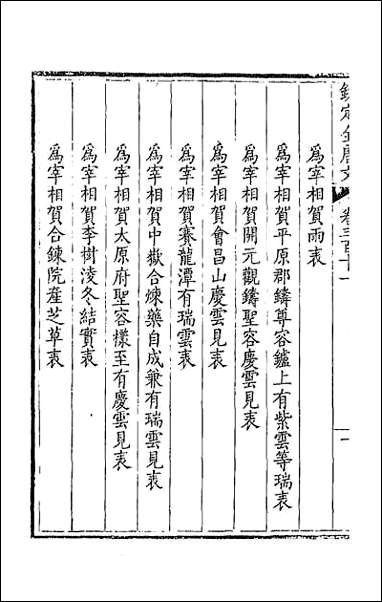 欽定全唐文
卷三百十一
一
爲宰相賀雨表
爲宰相賀平原郡鑄尊容鑪上有紫雲等瑞表
爲宰相賀開元觀鑄聖容慶雲見表
爲宰相賀會昌山慶雲見表
爲宰相賀賽龍潭有瑞雲表
爲宰相賀中嶽合煉藥自成兼有瑞雲見表
爲宰相賀太原府聖容樣至有慶雲見表
爲宰相賀李樹淩冬結實表
爲宰相賀合鍊院產芝草表